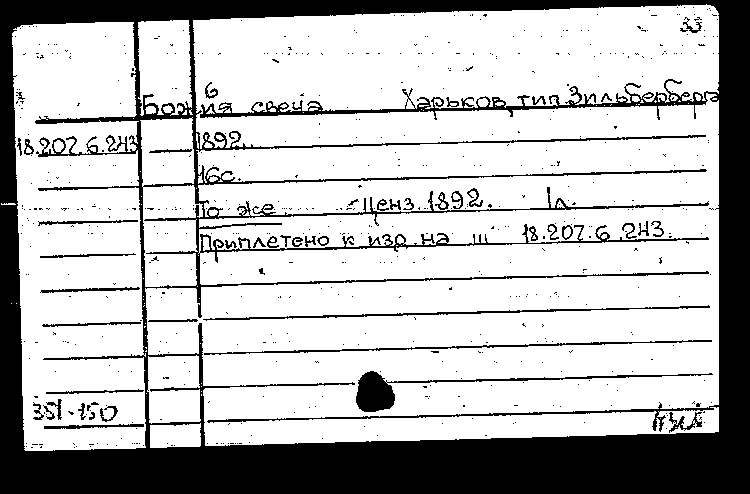 33
б
Божия свеча Харьков, тип. Зильберберга
18.207.6.243 1892.
16с.
То же - Ценз. 1892. 1л.
Приплетено к изд. на ш 18.207.6.243.
351-150